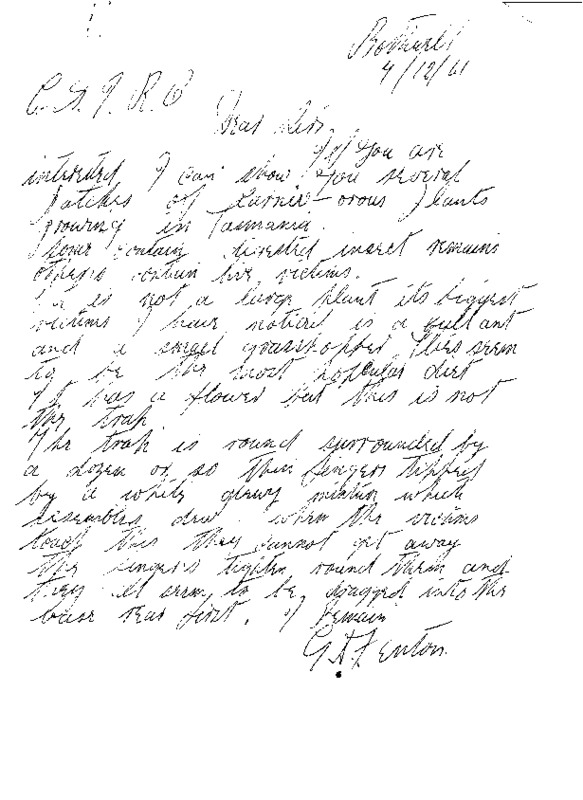 Bothwell
4/12/61
C. S. I. R. O
Dear Sir,
If you are
intrested I can show you several
patches of carniv-orous plants
growing in Tasmania.
some contain digested insect remains
others contain live victims.
it is not a large plant its biggest
victims I have noticed is a bull ant
and a small grasshopper flies seem
to be the most popular diet
It has a flower but this is not
the trap.
The trap is round surrounded by
a dozen or so thin fingers tipped
by a white gluey mixture which
resembles dew. when the victims
touch this they cannot get away
the fingers tighten round them and
they all seem to be dragged into the
base rear first. I remain
G A Fenton.